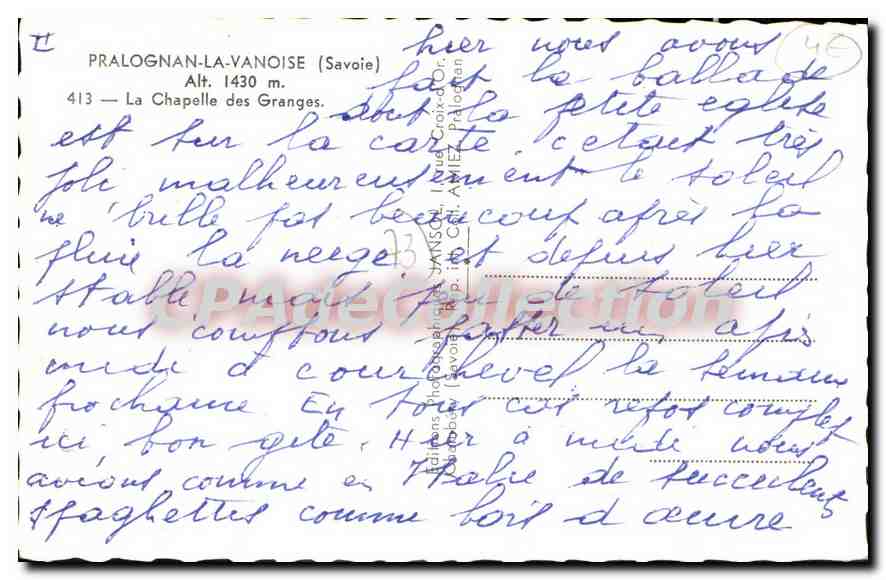 II
PRALOGNAN-LA-VANOISE (Savoie)
Alt. 1430 m.
413 — La Chapelle des Granges.
4E
hier nous avons
fait la ballade
dont la petite eglise
est sur la carte. c'etait très
joli malheureusement le soleil
ne brille pas beaucoup après la
pluie la neige est depuis hier
stable mais peu de soleil
nous comptons passer un après
midi à courchevel la semaine
prochaine En tous cas repos complet
ici, bon gite. Hier à midi nous
avions comme en Italie de succulents
spaghettis comme hors d'œuvre
73
Editions Photographiques JANSOL, 1, rue Croix-d'Or,
Chambéry (Savoie) Rep. int. Coll. AMIEZ, Pralognan
CPAdeCollection